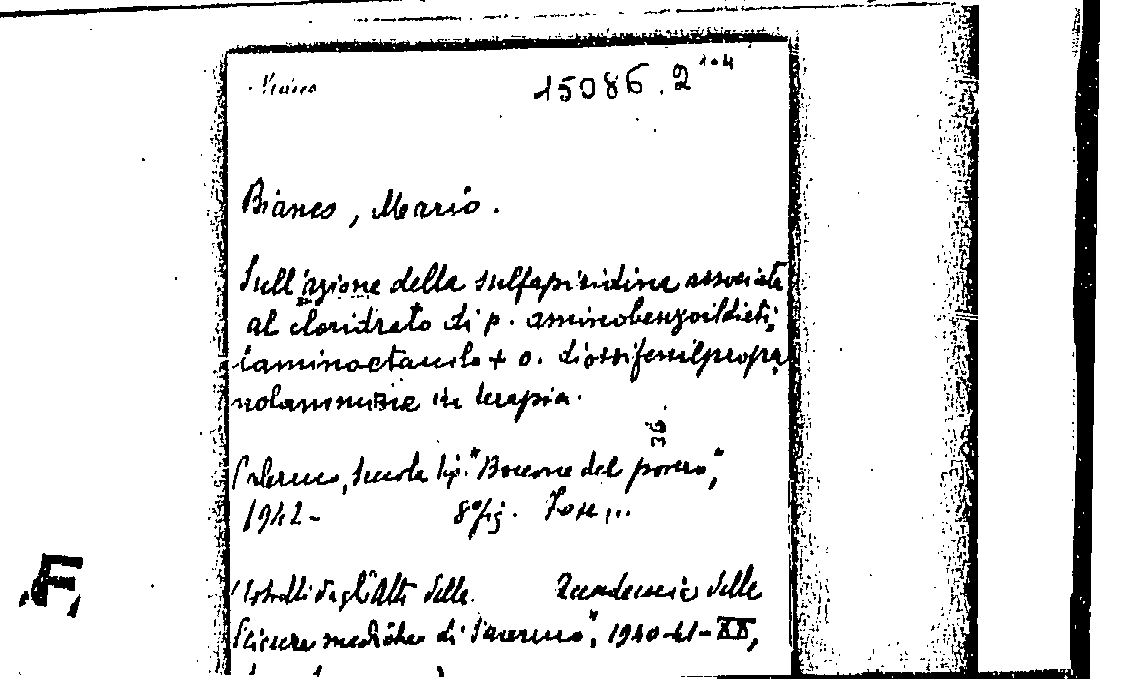 15086.2 104
Bianco, Mario.
Sull'azione della sulfapiridina associata
al cloridrato di p. aminobenzoildieti,
laminoetanolo + o. diossifenilpropa,
nolammina in terapia.
36
Palermo, Scuola tip. "Boccone del povero",
1942- 8°fig.
Estratti dagli Atti della Accademia delle
Scienze mediche di Palermo", 1940-41-XX,
F